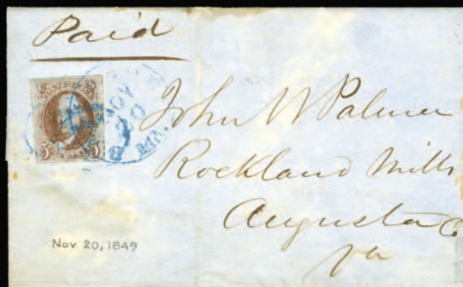 Paid
5 5
NOV
20
John W Palmer
Rockland Mills
Augusta Co
Va
Nov 20, 1849